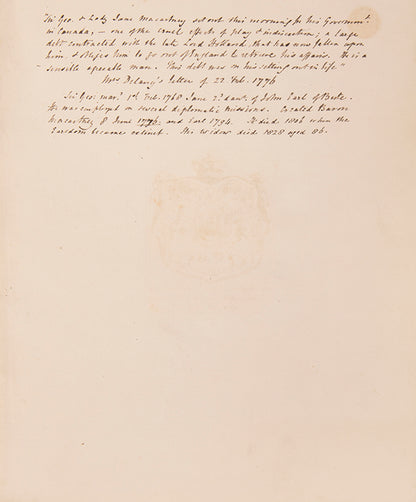 "Sir Geo. & Lady Jane Macartney set out this morning for his Governmt.
in Canada, – one of the cruel effects of play & indiscretion; a large
debt contracted with the late Lord Holland, that had now fallen upon
him, & obliges him to go out of England to retrieve his affairs. He is a
sensible agreable man. This debt was on his setting out in life"
Mrs Delany's letter of 22 Feb. 1776
Sir Geo: mard. 1st Feb. 1768 Jane 2d daur. of John Earl of Bute.
He was employed on several diplomatic missions. Created Baron
Macartney 8 June 1776, and Earl 1794. He died 1806 when the
Earldom became extinct. His widow died 1828 aged 86.